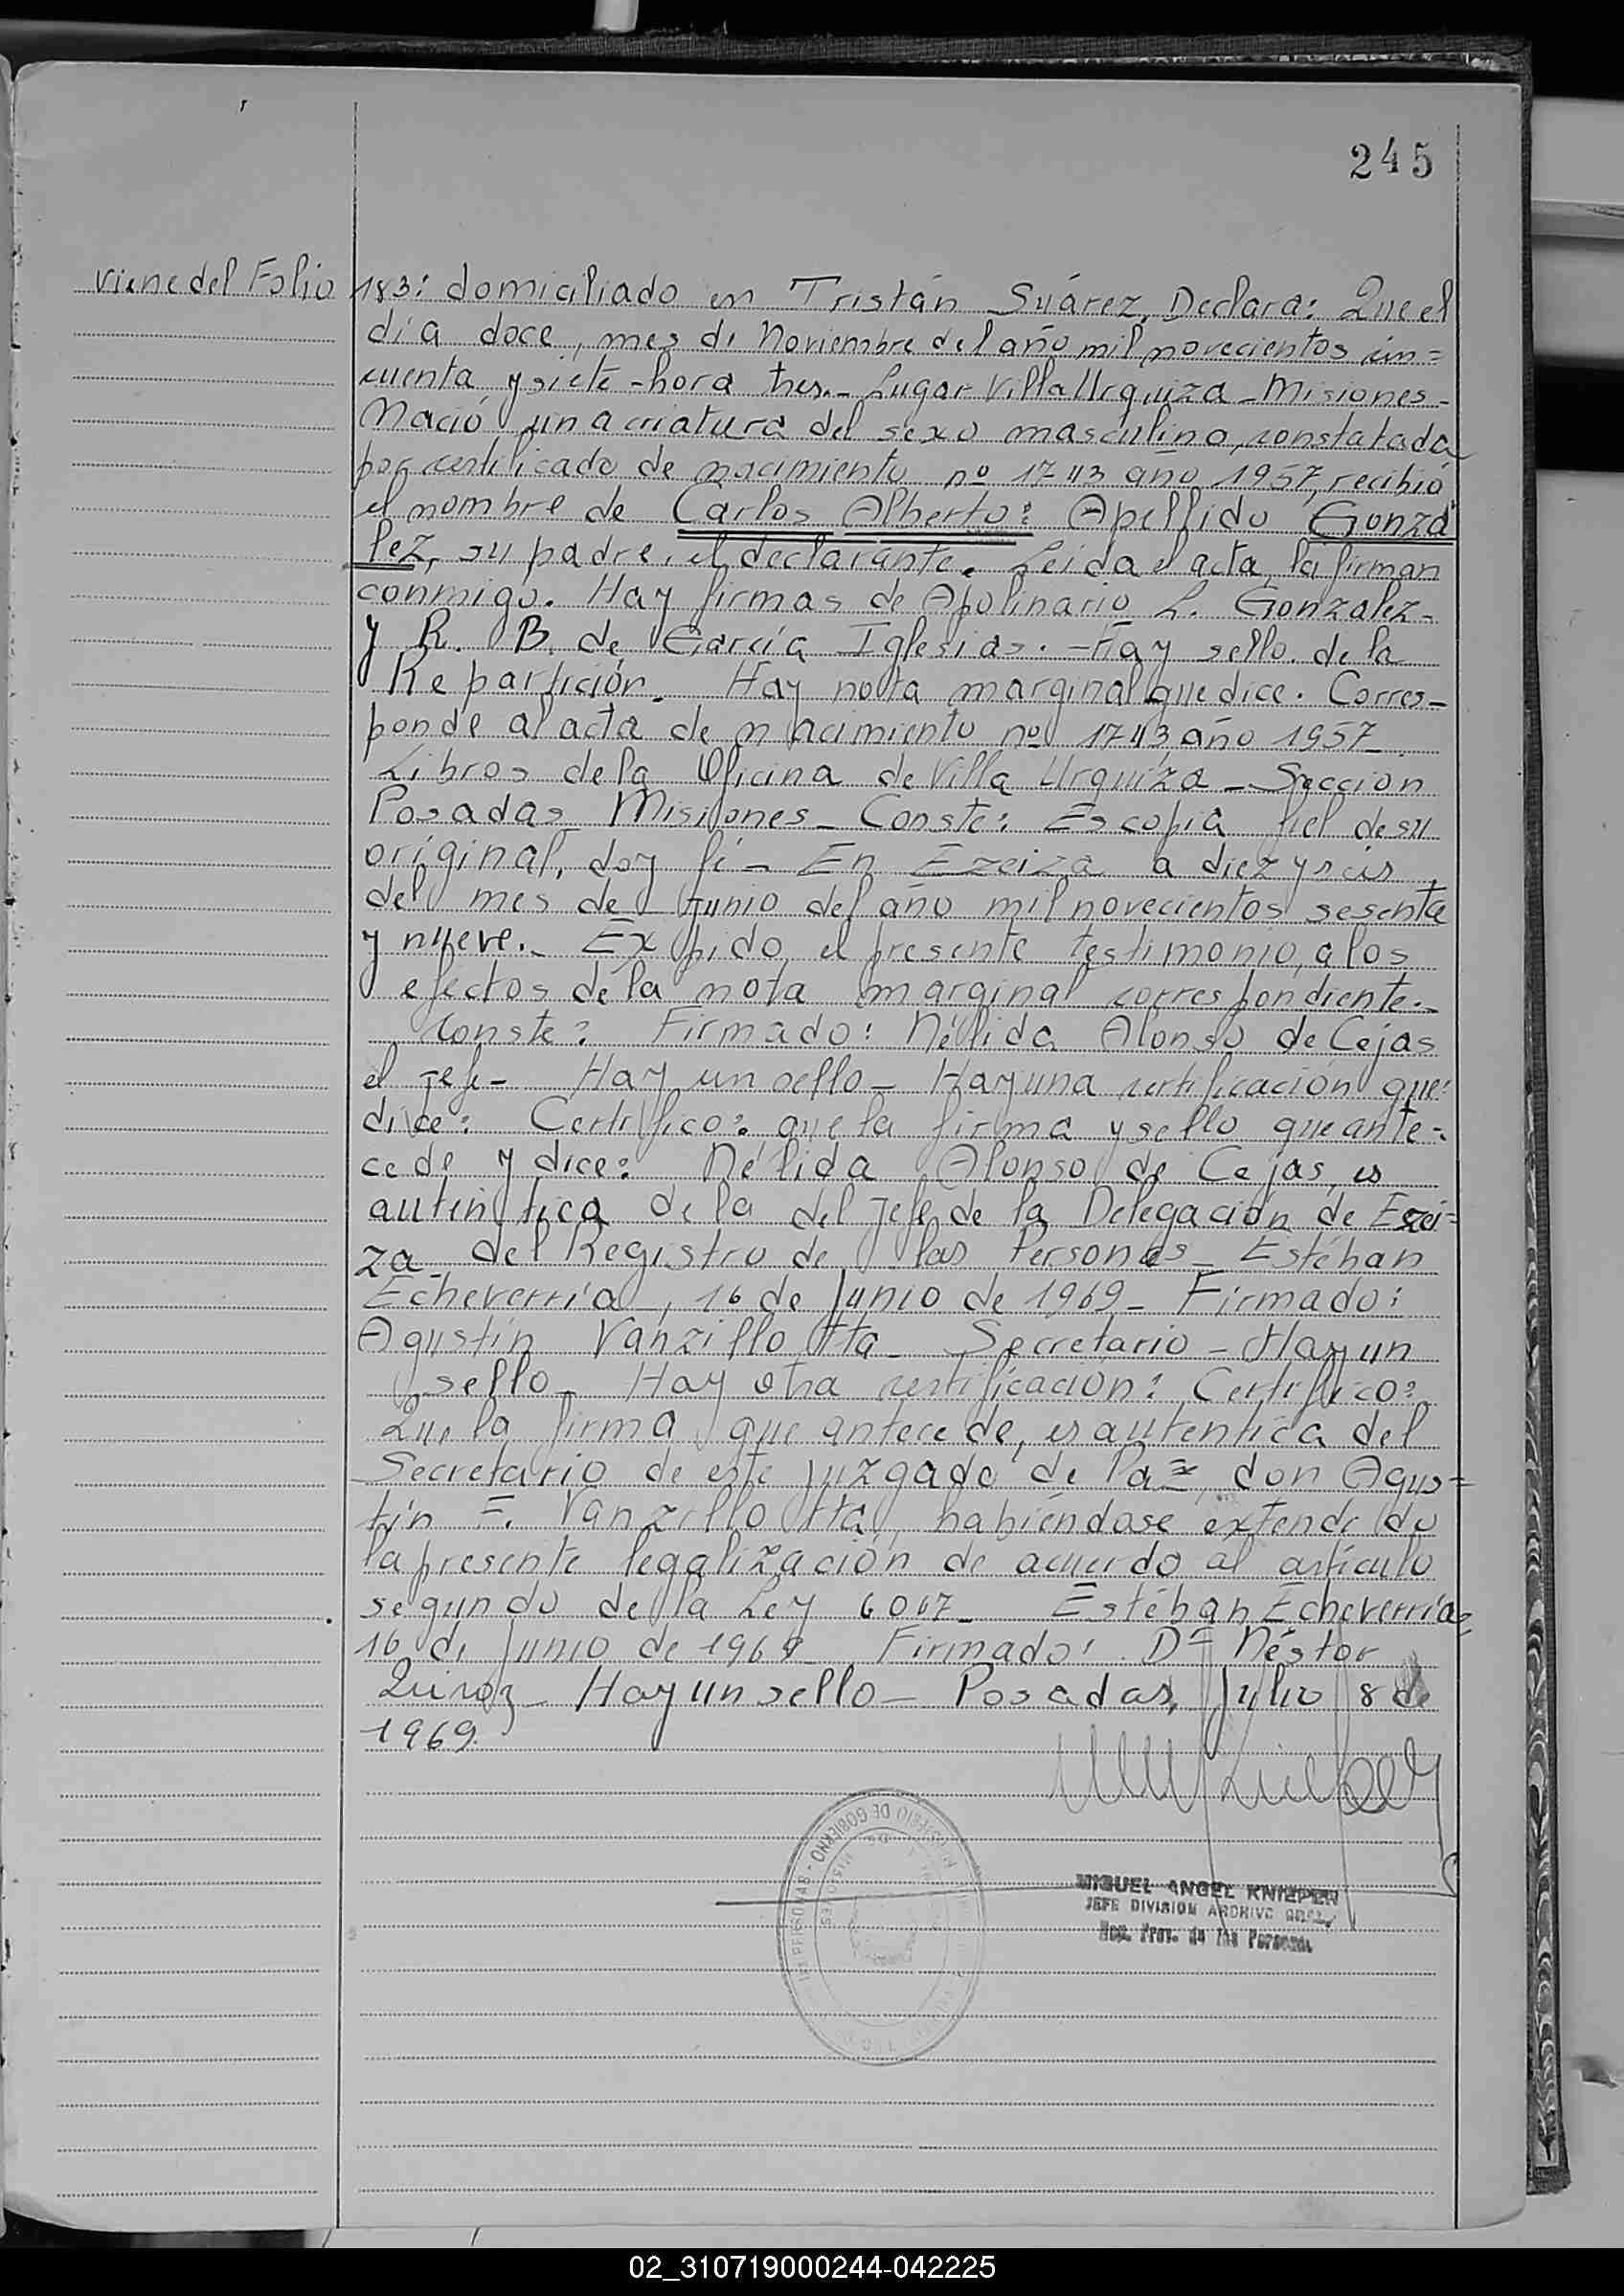 245
Viene del Folio 183: domiciliado en Tristán Suárez. Declara: Que el
día doce, mes de Noviembre del año mil novecientos cin=
cuenta y siete - hora tres.- Lugar Villa Urquiza - Misiones -
Nació una criatura del sexo masculino, constatada
por certificado de nacimiento nº 1743 año 1957, recibió
el nombre de Carlos Alberto: Apellido Gonzá
lez, su padre, el declarante. Leida el acta, la firman
conmigo. Hay firmas de Apolinario L. Gonzalez-
y R. B. de García Iglesias. - Hay sello de la
Repartición. Hay nota marginal que dice. Corres-
ponde al acta de nacimiento nº 1743 año 1957
Libros de la Oficina de Villa Urquiza - Sección
Posadas Misiones - Conste: Es copia fiel de su
original, doy fé - En Ezeiza a diez y seis
del mes de Junio del año mil novecientos sesenta
y nueve.- Expido el presente testimonio, a los
efectos de la nota marginal correspondiente.-
Conste: Firmado: Nélida Alonso de Cejas
el Jefe - Hay un sello - Hay una certificación que
dice: Certifico: que la firma y sello que ante-
cede y dice: Nélida Alonso de Cejas, es
auténtica de la del Jefe de la Delegación de Ezei=
za del Registro de las Personas - Estéban
Echeverría, 16 de Junio de 1969 - Firmado:
Agustín Vanzillotta - Secretario - Hay un
sello - Hay otra certificación: Certifico:
Que la firma que antecede, es autentica del
Secretario de este Juzgado de Paz, don Agus=
tín F. Vanzillotta, habiéndose extendido
la presente legalización de acuerdo al artículo
segundo de la Ley 6067 - Estéban Echeverría,
16 de Junio de 1969 Firmado: Dr Néstor
Quiroz - Hay un sello - Posadas, Julio 8 de
1969.
MINISTERIO DE GOBIERNO -
MIGUEL ANGEL KNIEPEN
JEFE DIVISION ARCHIVO GRAL.
Reg. Prov. de las Personas
02_310719000244-042225